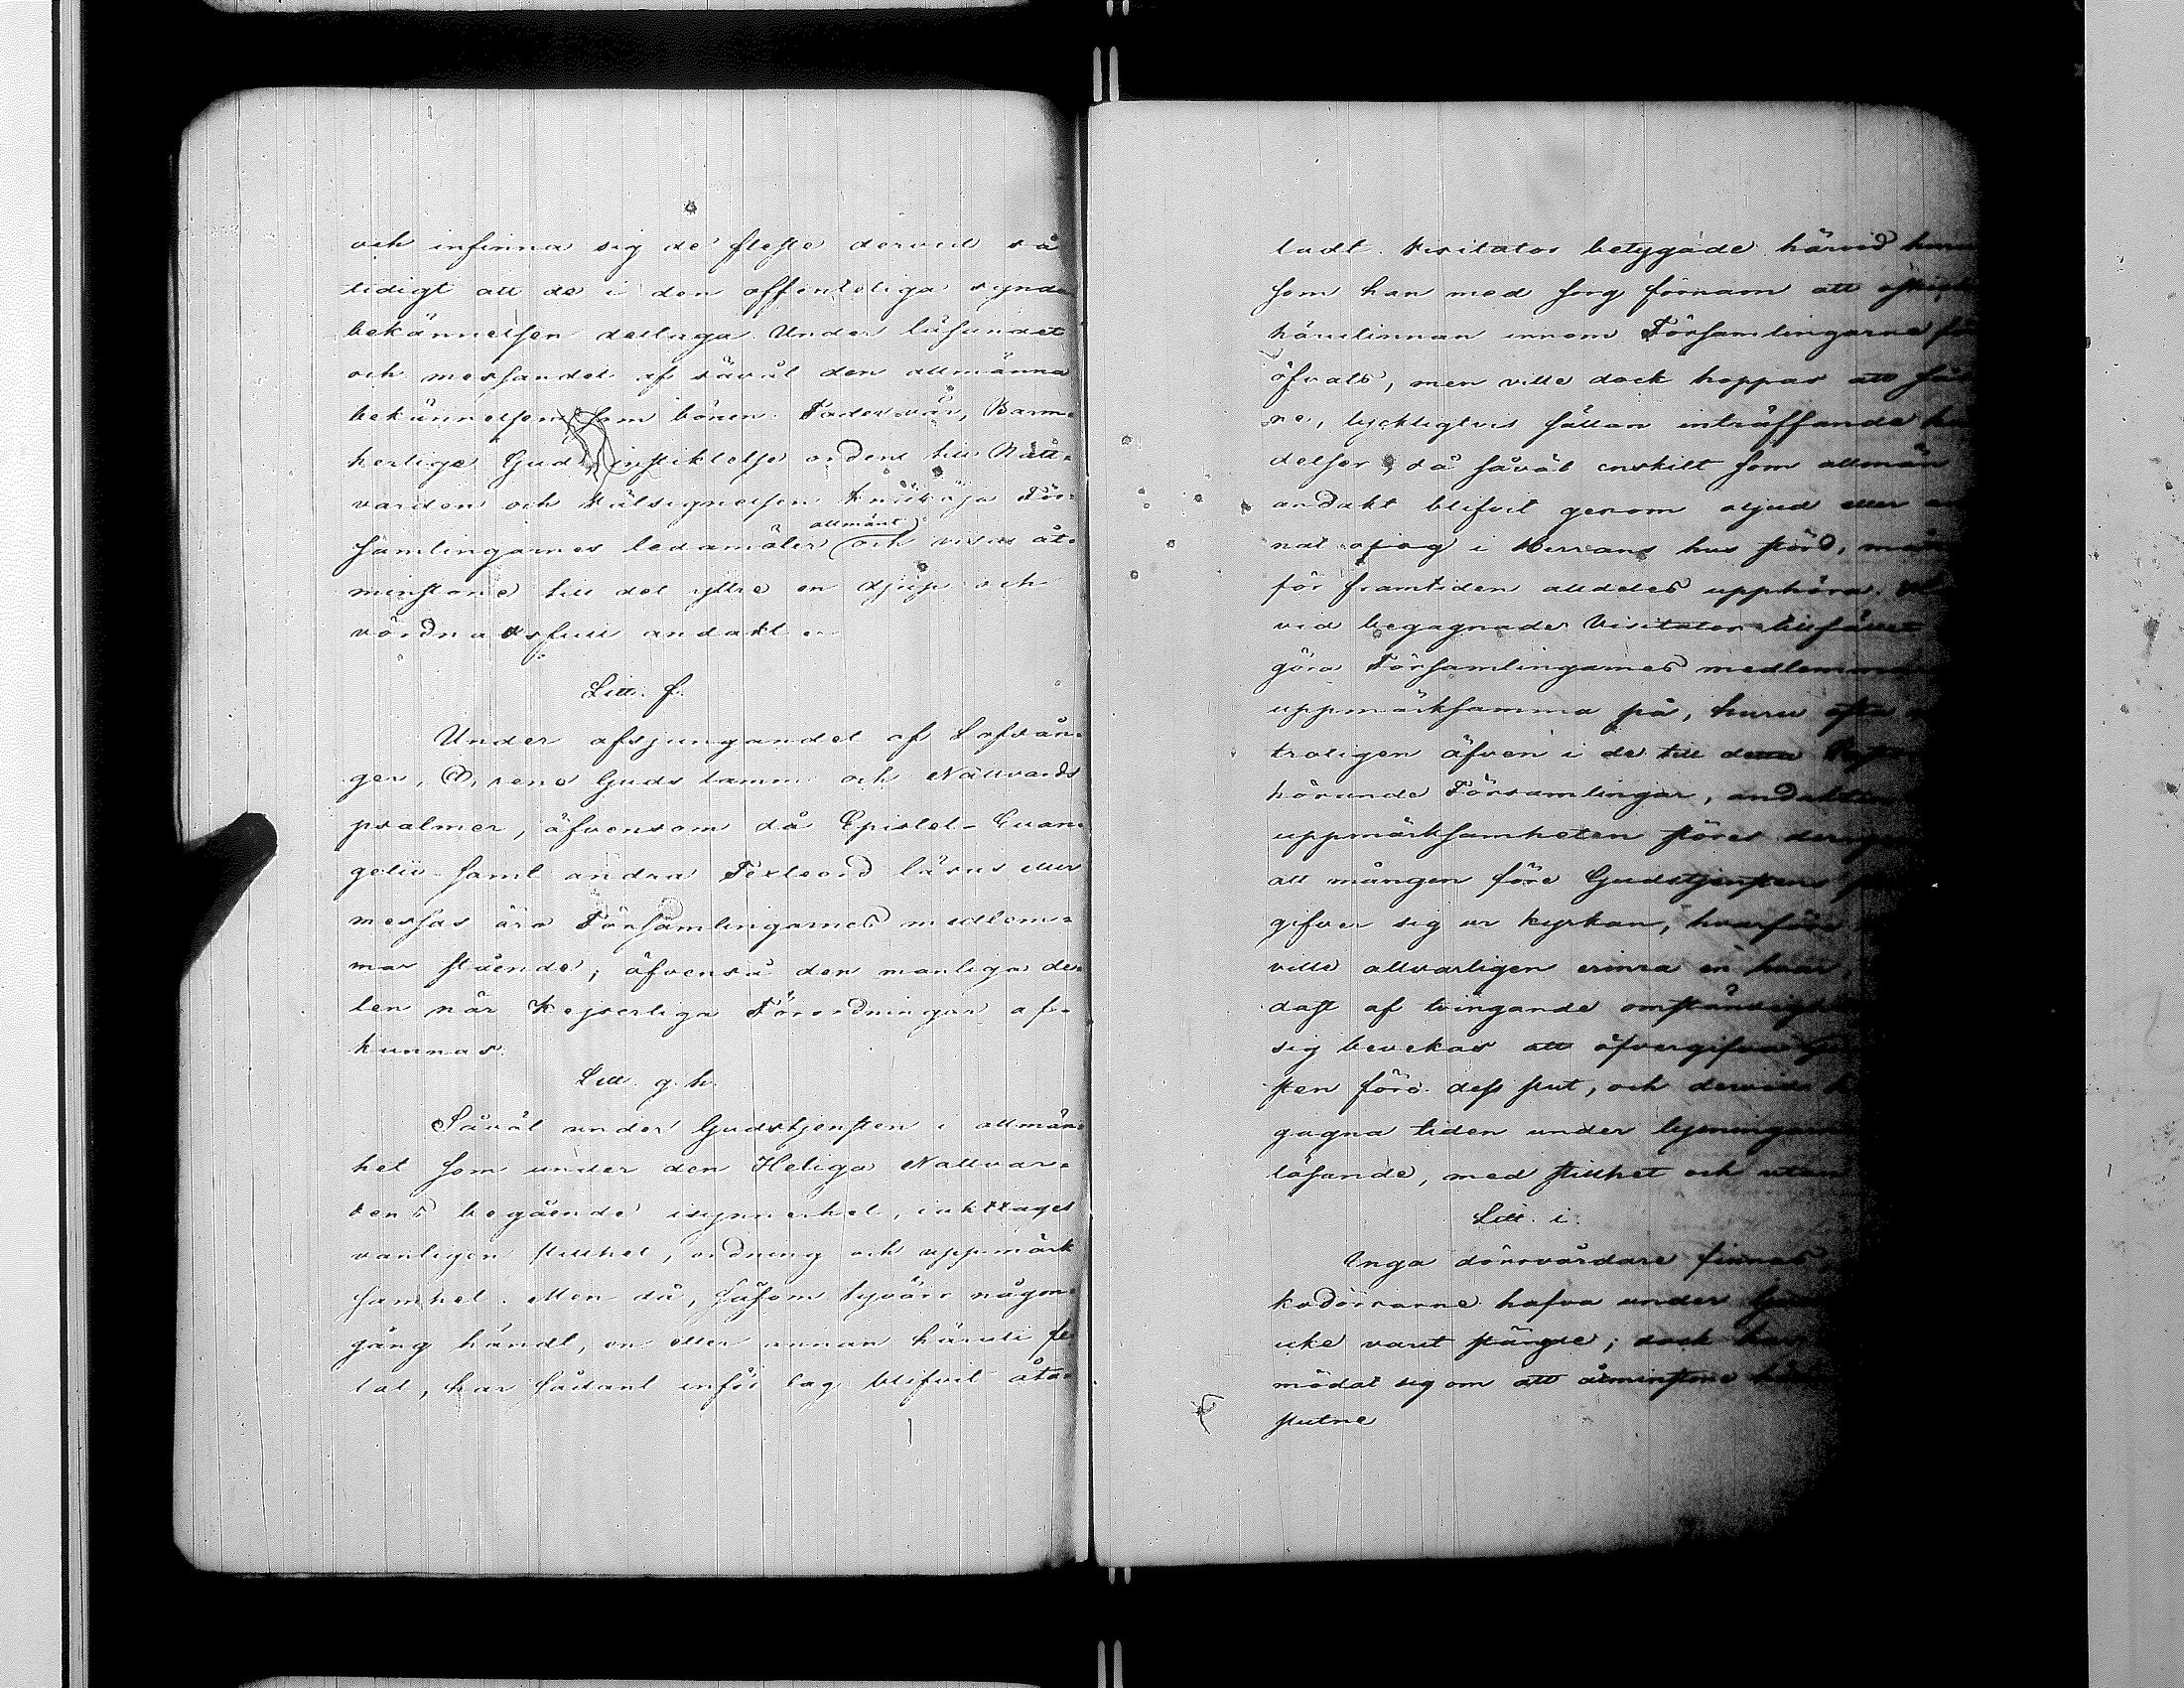 och infinna sig de fleste dervid så
tidigt att de i den offenteliga synda
bekännelsen deltaga. Under läsandet
och messandet af såväl den allmänna
bekännelsen som bönen: Fader vår, Barm-
hertige Gud, instiktelse ordens till Natt-
varden och Välsignelsen knäböja För-
allmänt
samlingarnes ledamöter och visas åt-
minstone till det yttre en djup och
vördnadsfull andakt.
Litt. f.
Under afsjungandet af Lofsån-
ger, O, rene Guds lamm och Nattvards
psalmer, äfvensom då Epistel- Evan-
gelii- samt andra Texteord läsas eller
messas äro Församlingarnes medlem-
mar stående; äfvenså den manliga de-
len när Kejserliga Förordningar af-
kunnas.
Litt. g. h.
Såväl under Gudstjensten i allmän-
het som under den Heliga Nattvar-
dens begående isynnerhet, iakttages
vanligen stillhet, ordning och uppmärk
samhet. Men då, såsom tyvärr någon-
gång händt, en eller annan häruti fe
lat, har sådant inför lag blifvit åta-
ladt. Visitator betygade härvid
som han med sorg förnam att
härutinnan innom Församlingarne
öfvats, men ville dock hoppas att
ne, lyckligtvis sällan inträffande
delser, då såväl enskilt som allmän
andakt blifvit genom oljud eller
nat ofog i Herrans hus störd,
för framtiden alldeles upphöra.
vid begagnade Visitator tillfället
göra Församlingarnes medlemmar
uppmärksamma på, huru ofta
troligen äfven i de till detta
hörande Församlingar, andakten
uppmärksamheten störes
att mången före Gudstjenstens
gifver sig ur kyrkan, hvarföre
ville allvarligen erinra en hvar,
dast af tvingande
sig bevekas att öfvergifva
sten före dess slut, och dervid
gagna tiden under
läsande, med stillhet och utan
Litt. i.
Inga dörrvårdare finnas
kodörrarne hafva under
icke varit stängde; dock har
mödat sig om att åtminstone
slutne